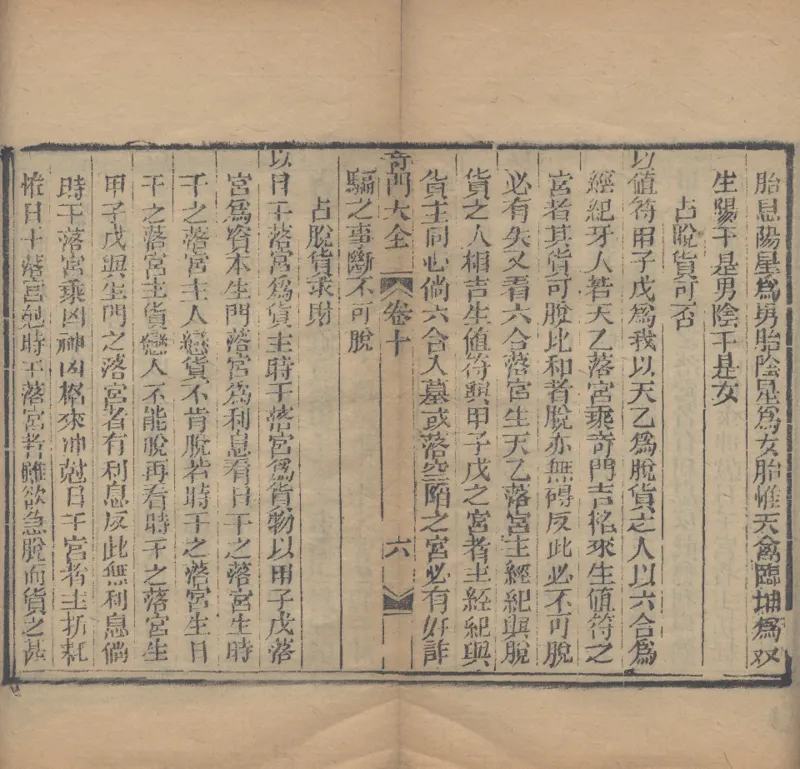 胎息陽星爲男胎陰星爲女胎惟天禽臨坤爲双
生陽干是男陰干是女
占脫貨可否
以値符甲子戊爲我以天乙爲脫貨之人以六合爲
經紀牙人若天乙落宮乘奇門吉格來生値符之
宮者其貨可脫比和者脫亦無碍反此必不可脫
必有失又看六合落宮生天乙落宮主經紀與脫
貨之人相吉生値符與甲子戊之宮者主經紀與
貨主同心倘六合入墓或落空陷之宮必有奸詐
奇門大全 卷十 六
騙之事斷不可脫
占脫貨求財
以日干落宮爲貨主時干落宮爲貨物以甲子戊落
宮爲資本生門落宮爲利息看日干之落宮生時
干之落宮主人戀貨不肯脫若時干之落宮生日
干之落宮主貨戀人不能脫再看時干之落宮生
甲子戊與生門之落宮者有利息反此無利息倘
時干落宮乘凶神凶格來冲尅日干宮者主折耗
惟日干落宮尅時干落宮者雖欲急脫而貨之甚